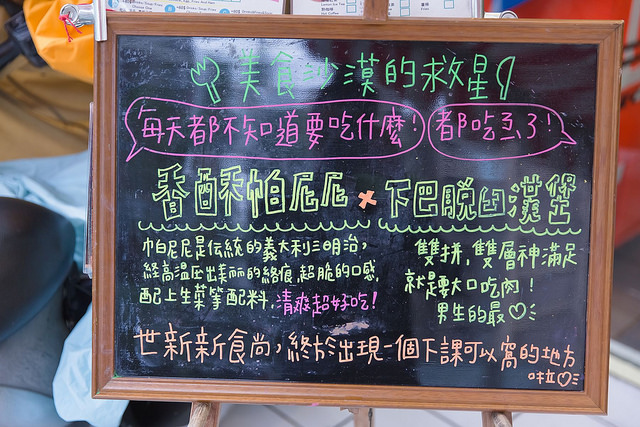 美食沙漠的救星
每天都不知道要吃什麼!
都吃ㄤˊ了!
香酥帕尼尼 × 下巴脫臼漢堡
帕尼尼是伝統的義大利三明治,
経高溫压出美丽的絡痕,超脆的口感,
配上生菜等配料.清爽超好吃!
雙拼,雙層神滿足
就是要大口吃肉!
男生的最♡
世新新食尚,終於出現一個下課可以窩的地方
啦♡